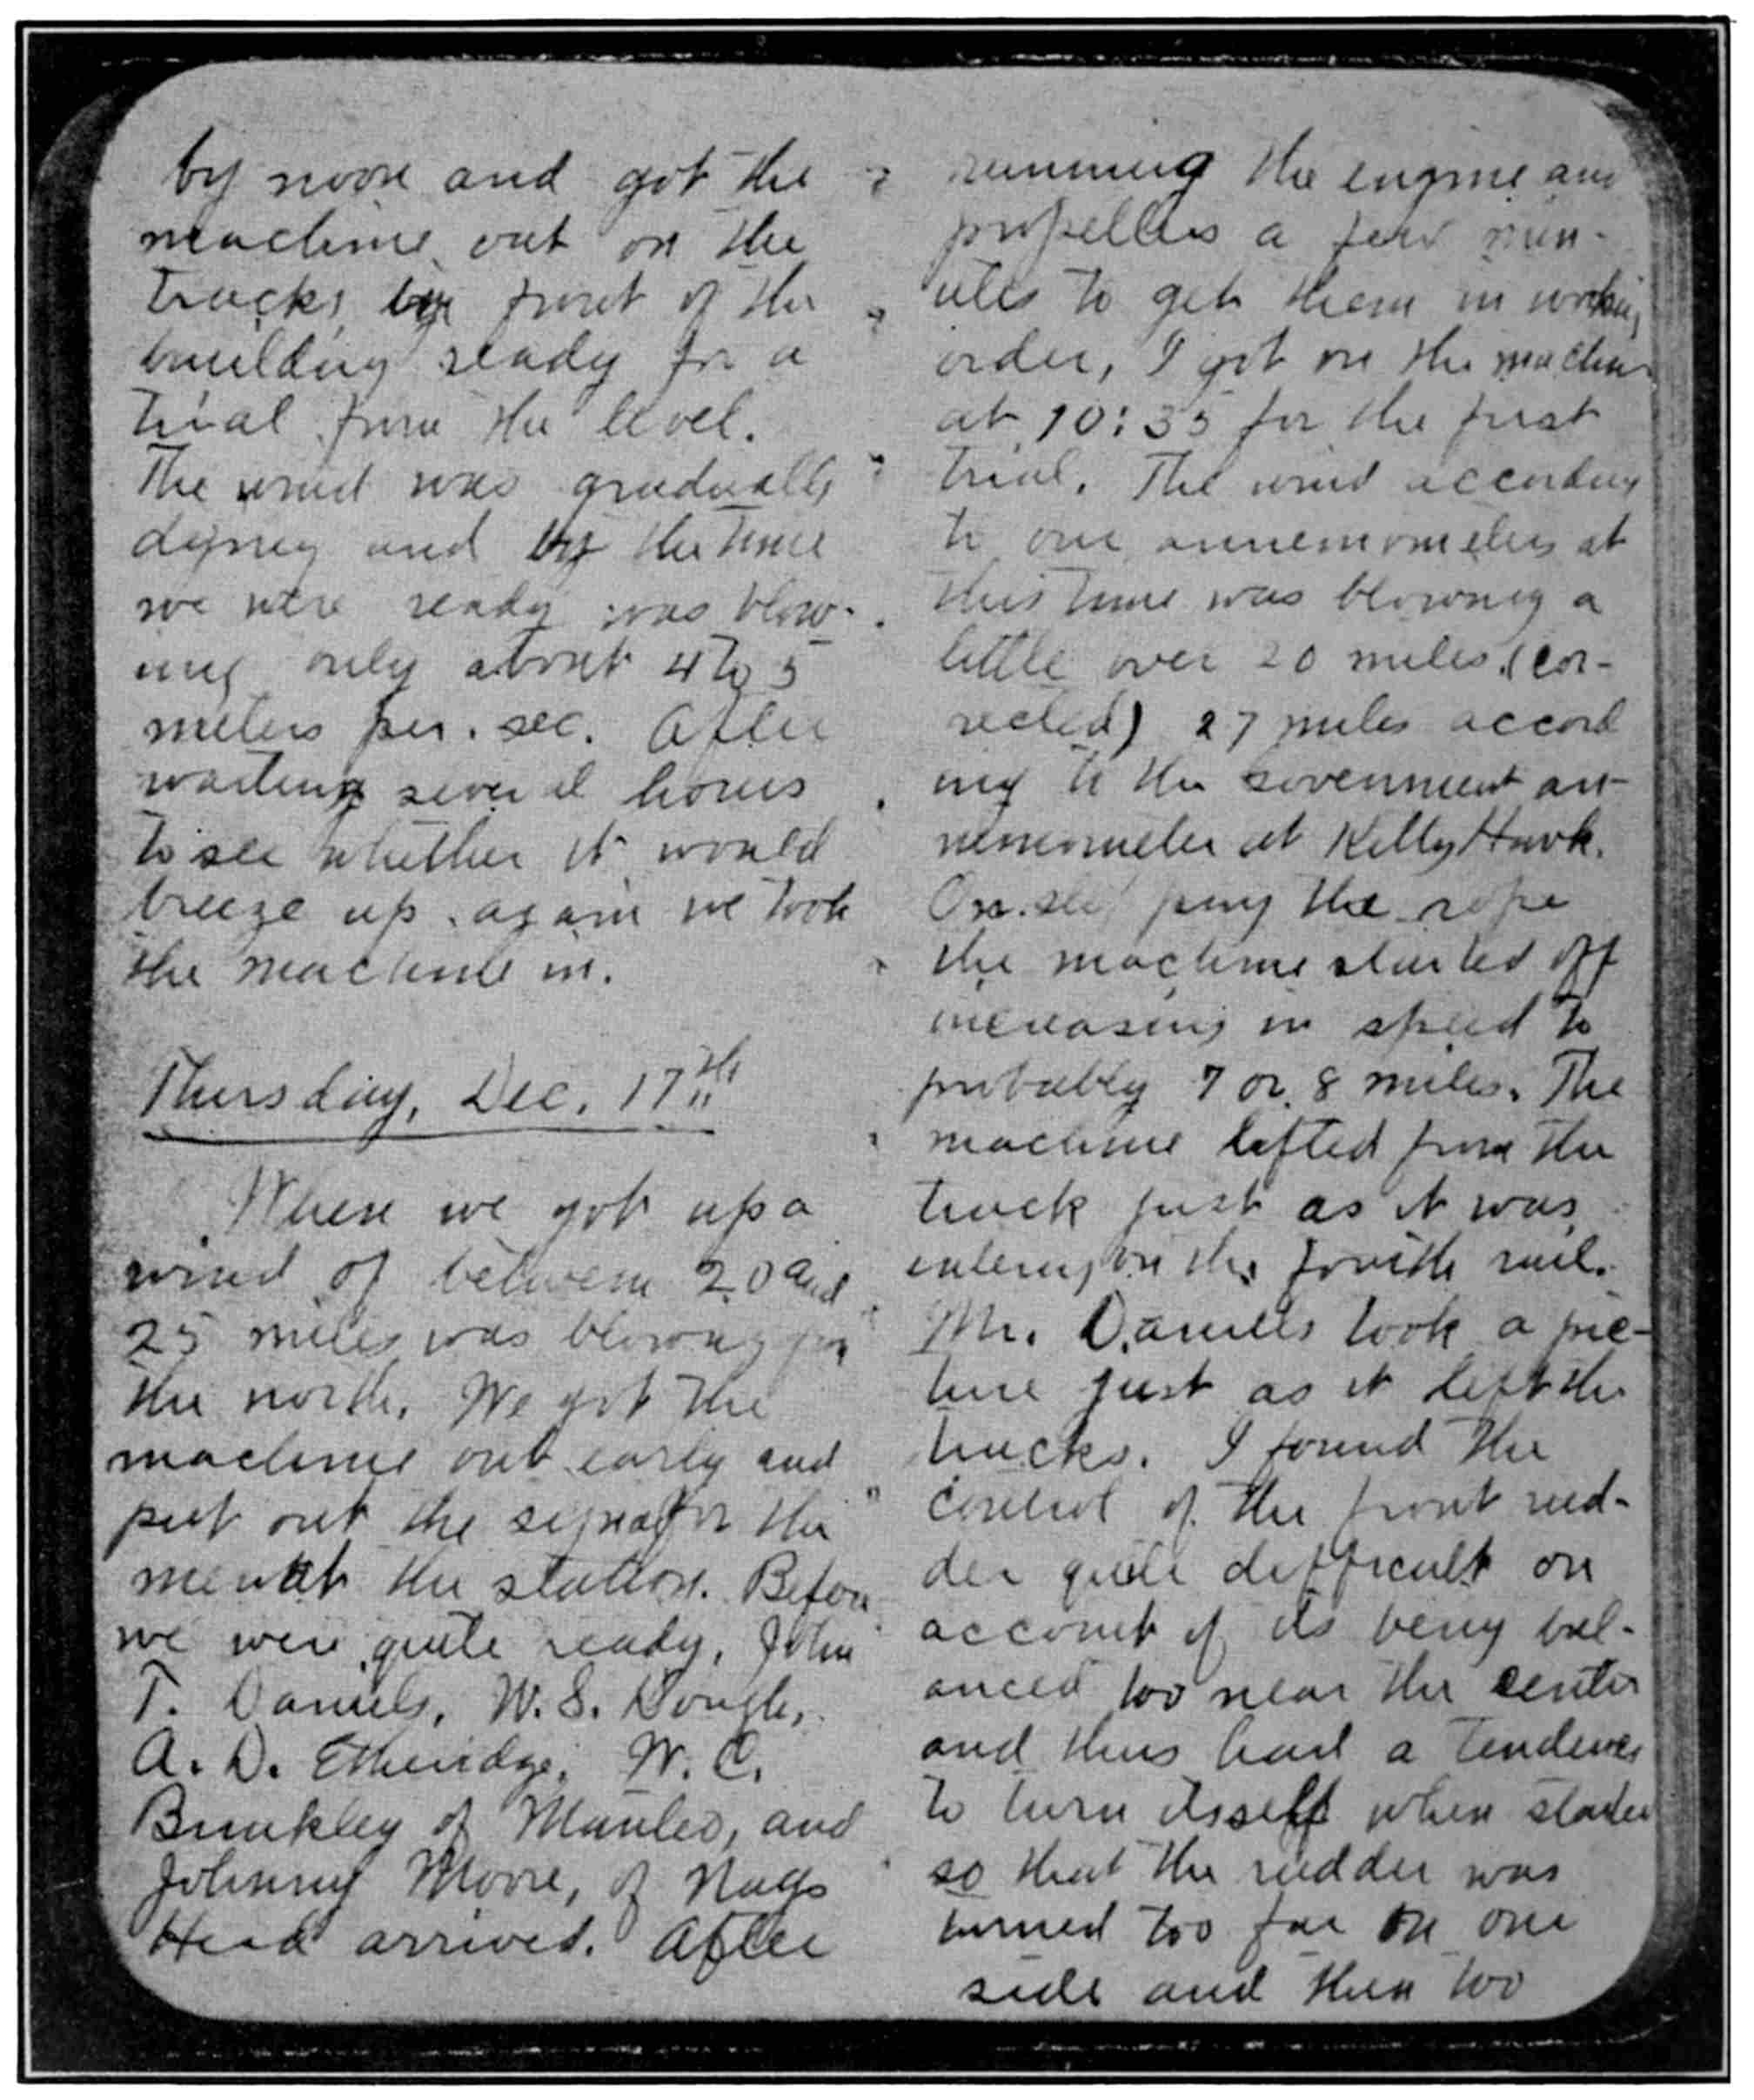 by noon and got the
machine out on the
tracks in front of the
building ready for a
trial from the level.
The wind was gradually
dyning and by the time
we were ready was blow-
ing only about 4 to 5
meters per. sec. After
waiting several hours
to see whether it would
breeze up again we took
the machine in.
Thursday, Dec. 17th
When we got up a
wind of between 20 and
25 miles was blowing from
the north. We got the
machine out early and
put out the signal for the
men at the station. Before
we were quite ready, John
T. Daniels, W. S. Dough,
A. D. Etheridge, W. C.
Brinkley of Manteo, and
Johnny Moore, of Nags
Head arrived. After
running the engine and
propellers a few min-
utes to get them in working
order, I got on the machine
at 10:35 for the first
trial. The wind according
to our annemometers at
this time was blowing a
little over 20 miles (cor-
rected) 27 miles accord
ing to the Government an-
nemometer at Kitty Hawk.
On slipping the rope
the machine started off
increasing in speed to
probably 7 or 8 miles. The
machine lifted from the
truck just as it was
entering on the fourth rail.
Mr. Daniels took a pic-
ture just as it left the
tracks. I found the
control of the front rud-
der quite difficult on
account of its being bal-
anced too near the center
and thus had a tendency
to turn itself when started
so that the rudder was
turned too far on one
side and then too